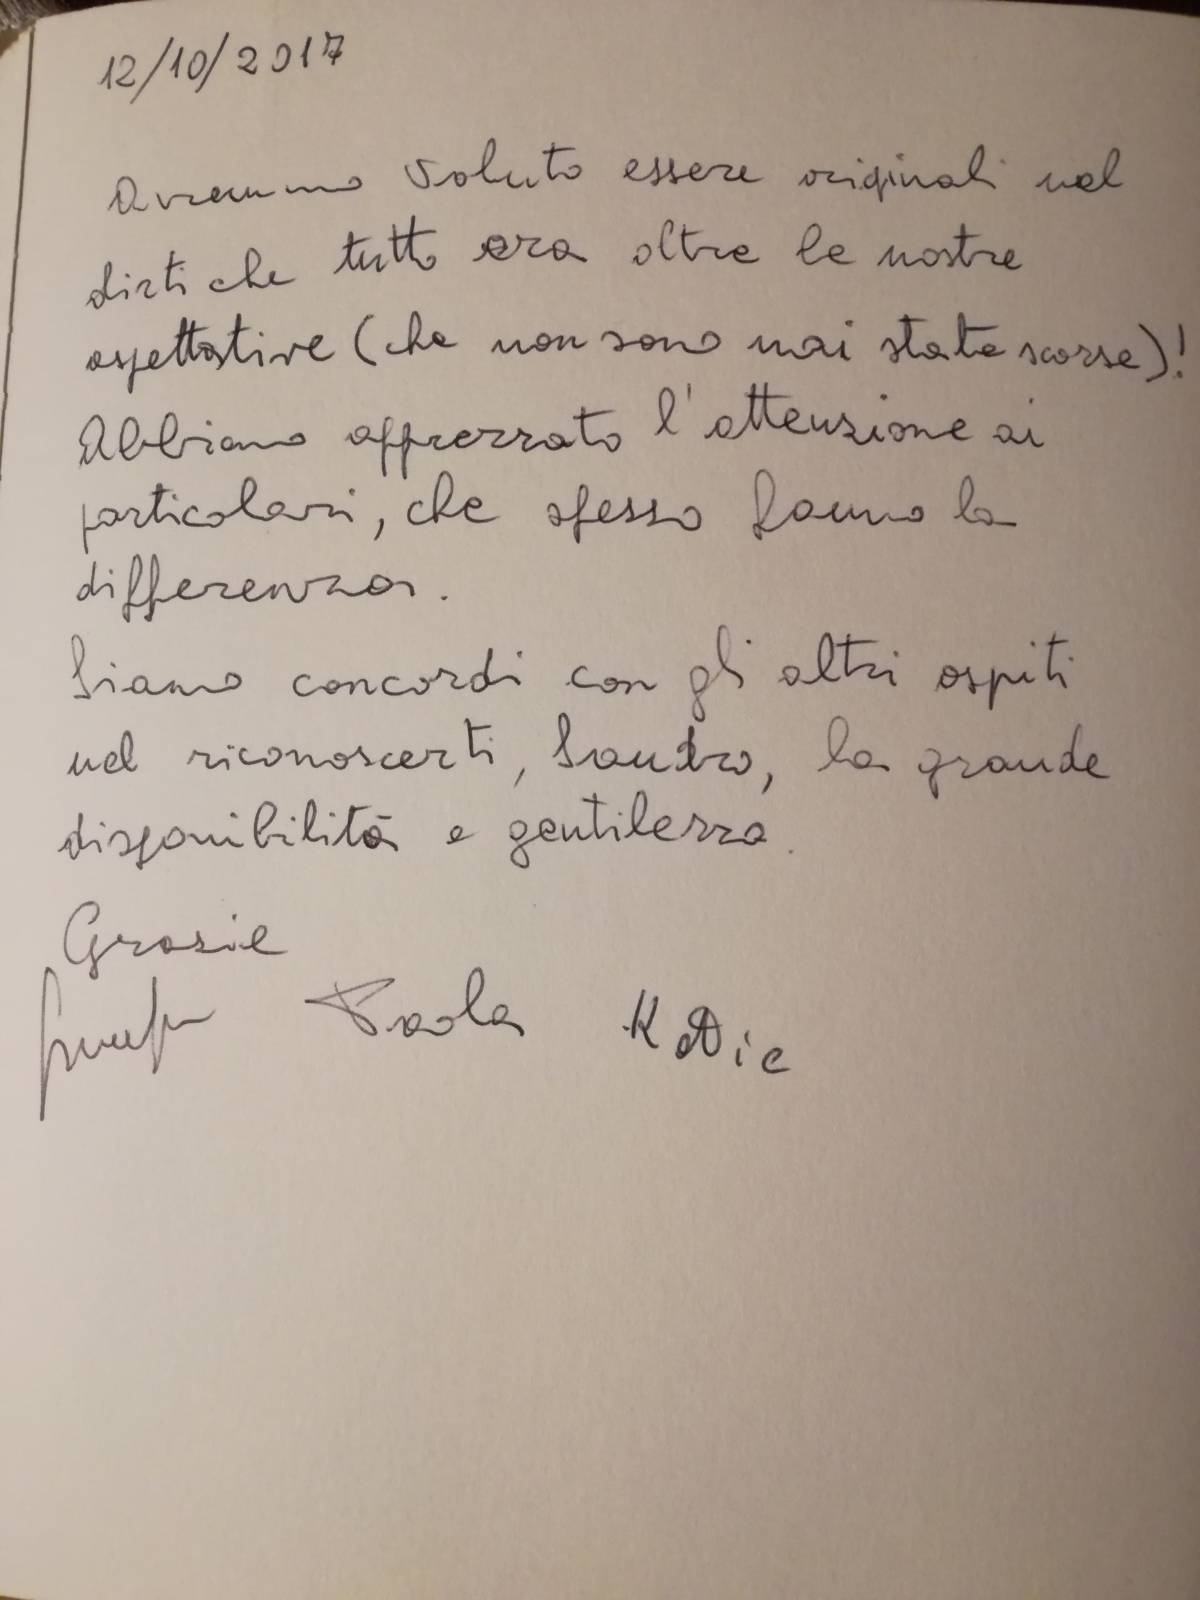 12/10/2017
Avremmo voluto essere originali nel
dirti che tutto era oltre le nostre
aspettative (che non sono mai state scarse)!
Abbiamo apprezzato l'attenzione ai
particolari, che spesso fanno la
differenza.
Siamo concordi con gli altri ospiti
nel riconoscerti, Sandro, la grande
disponibilità e gentilezza.
Grazie
Paola